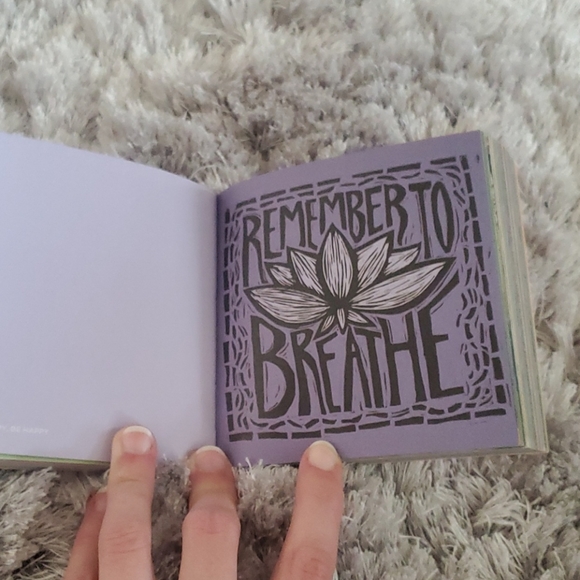 REMEMBER TO
BREATHE